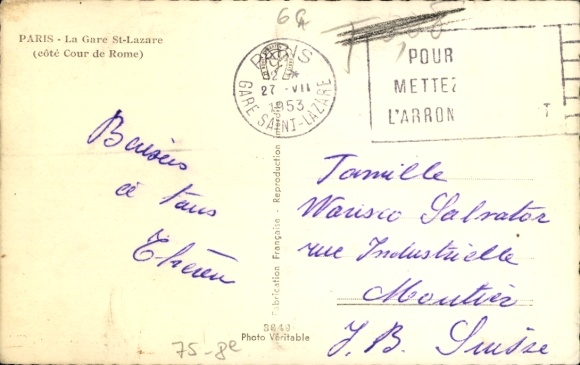 PARIS - La Gare St-Lazare
(côté Cour de Rome)
6G
PARIS
12 *
27 - VII
1953
GARE SAINT-LAZARE
POUR
METTEZ
L'ARRON T
Baisers
à tous
Famille
Warisco Salvator
rue Industrielle
Moutier
J. B. Suisse
Fabrication Française - Reproduction interdite
Photo Véritable
75-8e